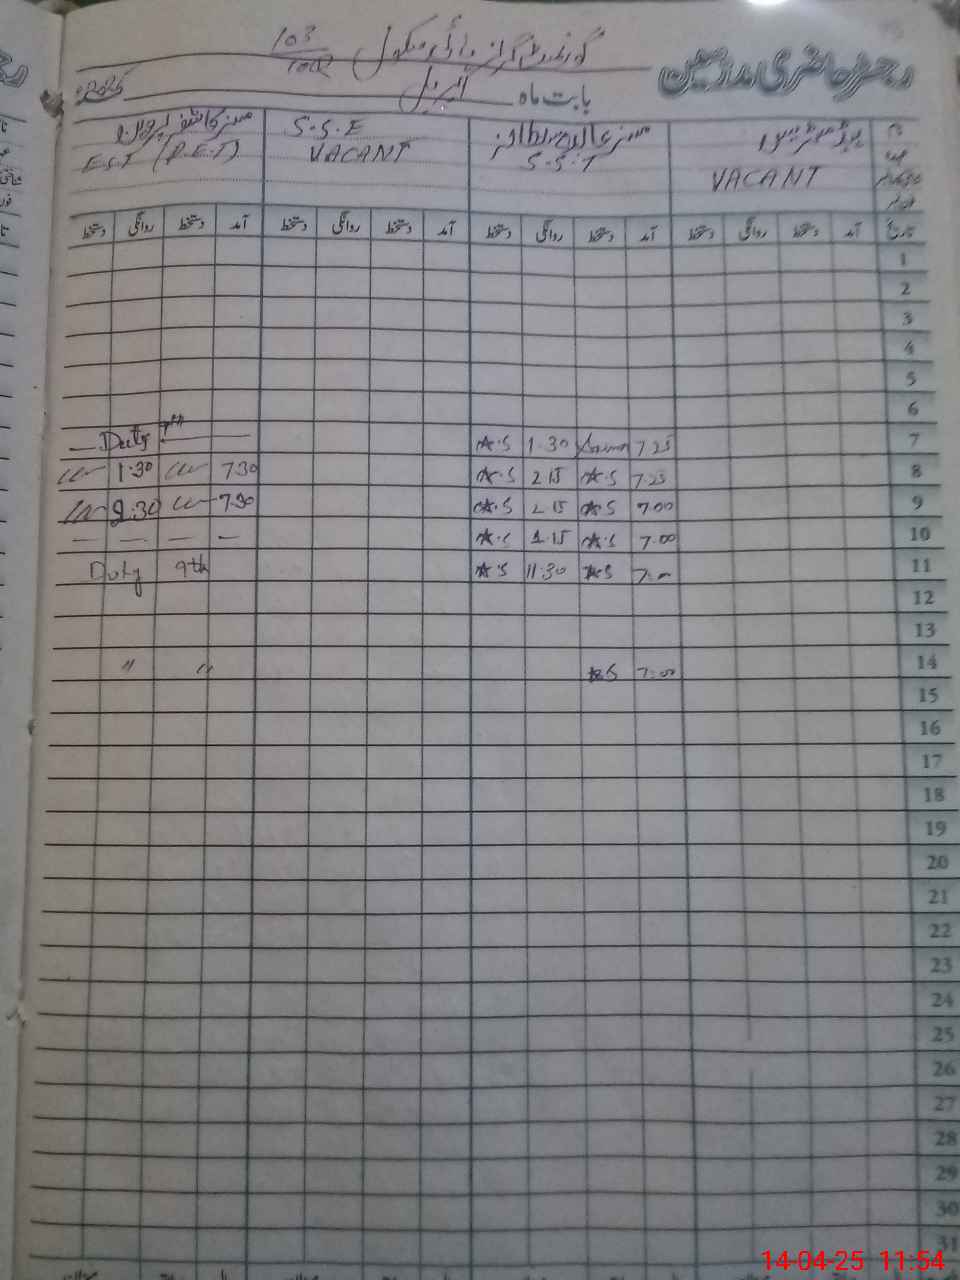 رجسٹر حاضری مدرسین
گورنمنٹ گرلز ہائی سکول 103
بابت ماہ اپریل 2025ء
ہیڈ مسٹریس
VACANT
مسز
S.S.T
S.S.E
VACANT
مسز
E.S.T (P.E.T)
نام
عہدہ
تاریخ آمد دستخط روانگی دستخط آمد دستخط روانگی دستخط آمد دستخط روانگی دستخط آمد دستخط روانگی دستخط
1
2
3
4
5
6
7 7.25 1.30 A.S — Duty 7th —
8 7.25 A.S 2.15 A.S 7.30 1.30
9 7.00 A.S 2.15 A.S 7.30 2.30
10 7.00 A.S 2.15 A.S — — — —
11 7.00 A.S 11.30 A.S Duty 9th
12
13
14 7:00 A.S " "
15
16
17
18
19
20
21
22
23
24
25
26
27
28
29
30
31
14-04-25 11:54